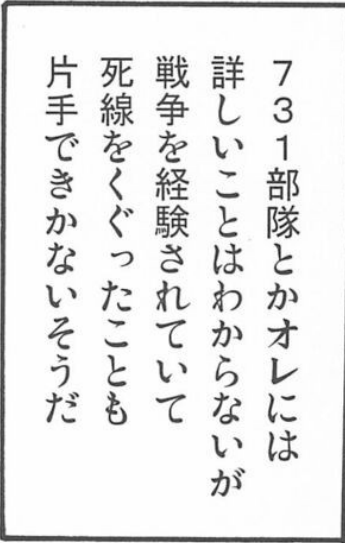 731部隊とかオレには
詳しいことはわからないが
戦争を経験されていて
死線をくぐったことも
片手できかないそうだ